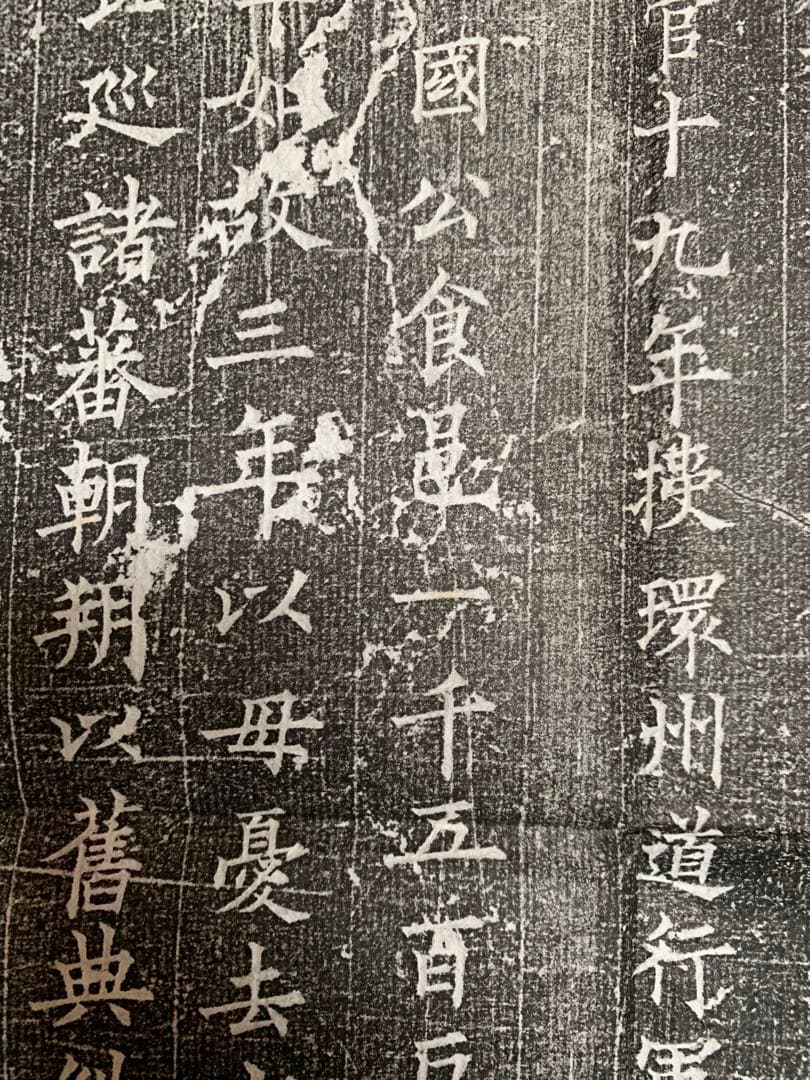 官十九年環州道行軍
國公食邑一千五百戶
如故三年以母憂去
巡諸蕃朝朔以舊典